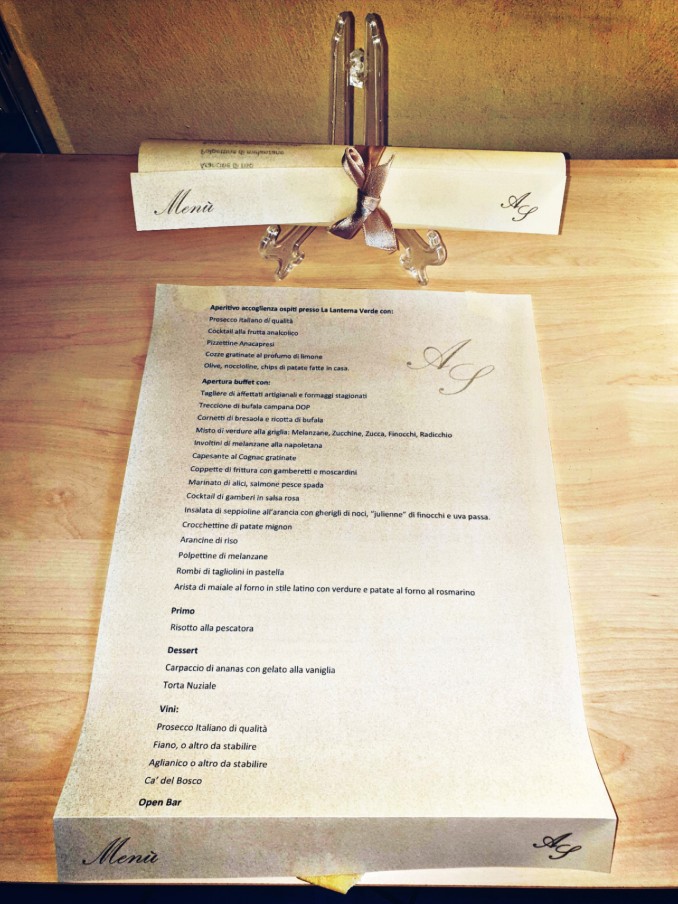 Polpettine di melanzane
Arancine di riso
Menù
AS
Aperitivo accoglienza ospiti presso La Lanterna Verde con:
Prosecco italiano di qualità
Cocktail alla frutta analcolico
Pizzettine Anacapresi
Cozze gratinate al profumo di limone
Olive, noccioline, chips di patate fatte in casa.
AS
Apertura buffet con:
Tagliere di affettati artigianali e formaggi stagionati
Treccione di bufala campana DOP
Cornetti di bresaola e ricotta di bufala
Misto di verdure alla griglia: Melanzane, Zucchine, Zucca, Finocchi, Radicchio
Involtini di melanzane alla napoletana
Capesante al Cognac gratinate
Coppette di frittura con gamberetti e moscardini
Marinato di alici, salmone pesce spada
Cocktail di gamberi in salsa rosa
Insalata di seppioline all'arancia con gherigli di noci, "julienne" di finocchi e uva passa.
Crocchettine di patate mignon
Arancine di riso
Polpettine di melanzane
Rombi di tagliolini in pastella
Arista di maiale al forno in stile latino con verdure e patate al forno al rosmarino
Primo
Risotto alla pescatora
Dessert
Carpaccio di ananas con gelato alla vaniglia
Torta Nuziale
Vini:
Prosecco Italiano di qualità
Fiano, o altro da stabilire
Aglianico o altro da stabilire
Ca' del Bosco
Open Bar
Menù
AS